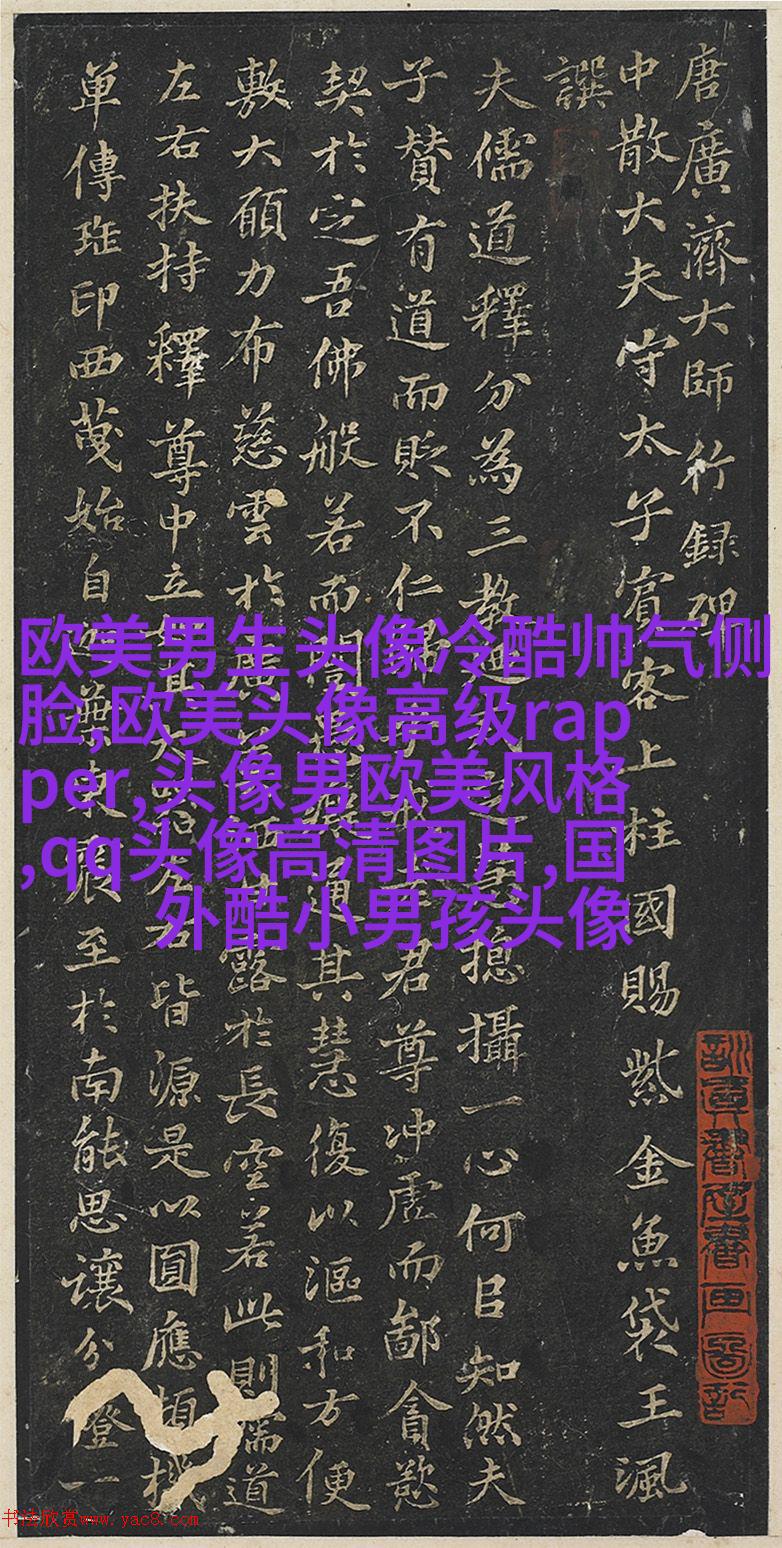 唐廣濟大師行録碑
中散大夫守太子賓客上柱國賜紫金魚袋王諷
譔
夫儒道釋分為三教
揔攝一心何㠯知然夫
子賛有道而貶不仁
君尊冲虛而鄙貪慾
契於㝎吾佛般若而
通其慧復以漚和方便
敷大願力布慈雲於
露於長空若此則儒道
左右扶持釋尊中立
皆源是以圓應
單傳
印西
始自
至於南能思讓分燈一
欧美男生头像冷酷帅气侧
脸,欧美头像高级rap
per,头像男欧美风格
,qq头像高清图片,国
外酷小男孩头像
书法欣赏www.yac8.com